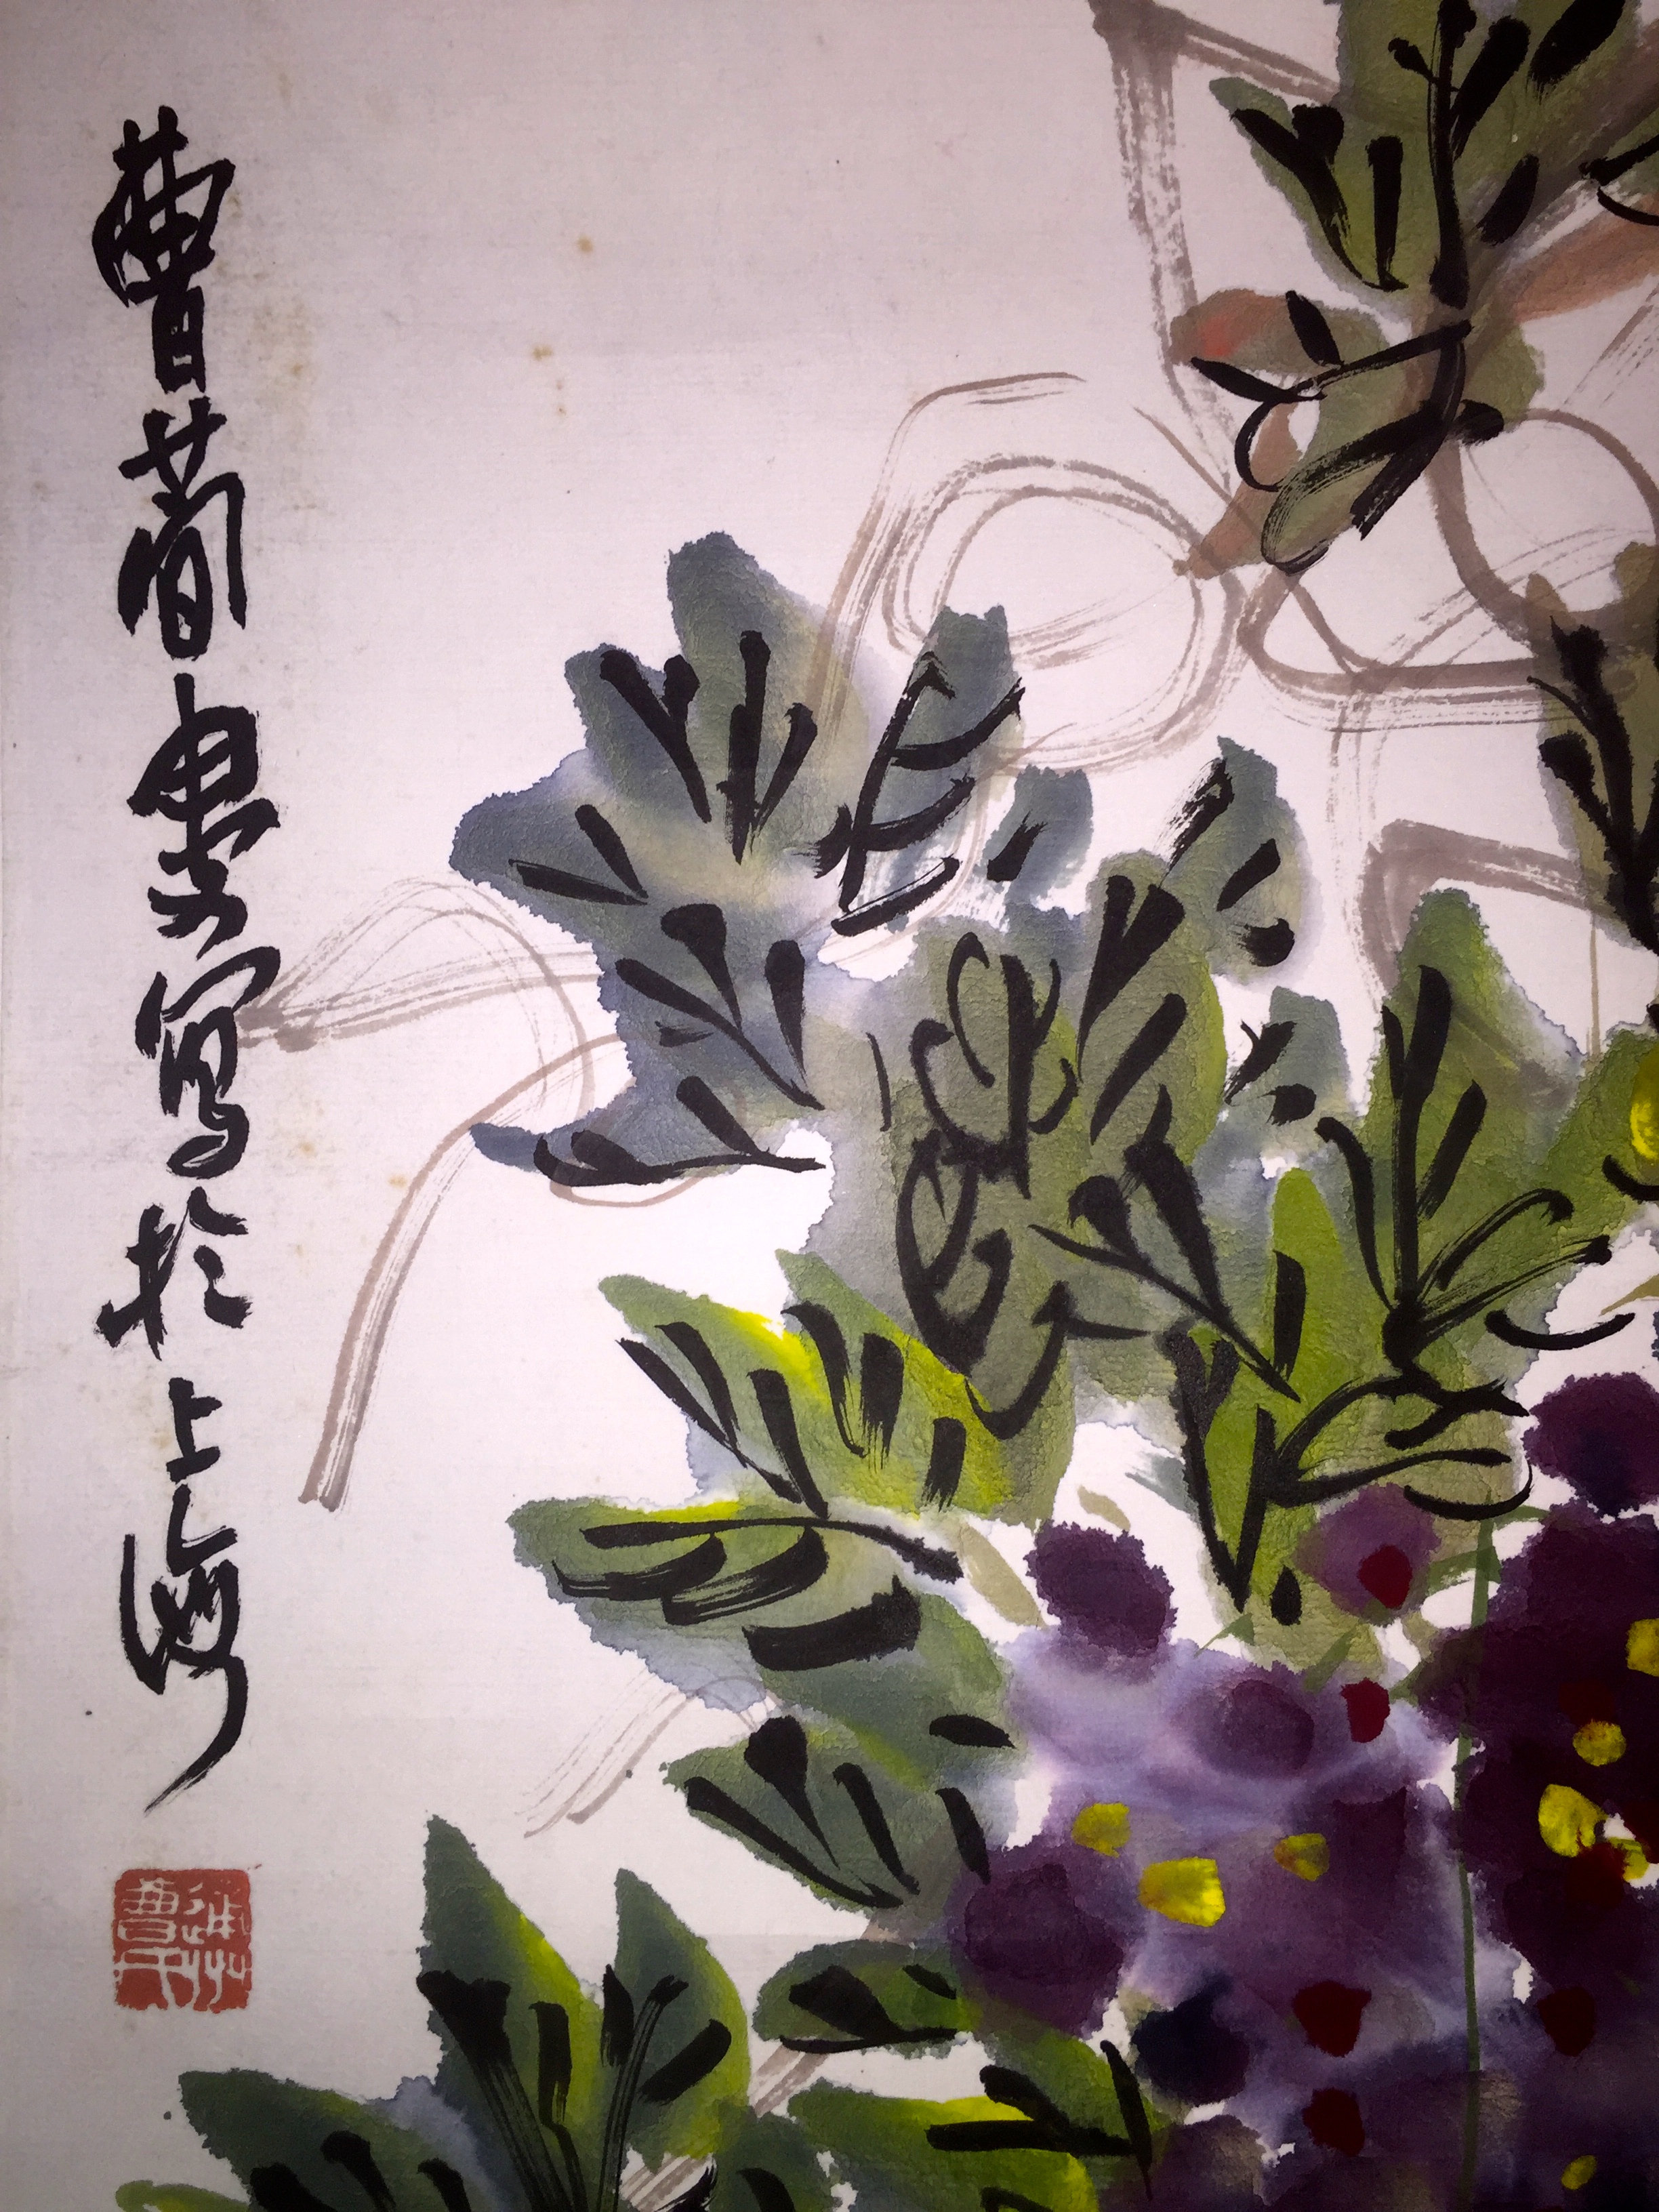 曹簡婁寫於上海